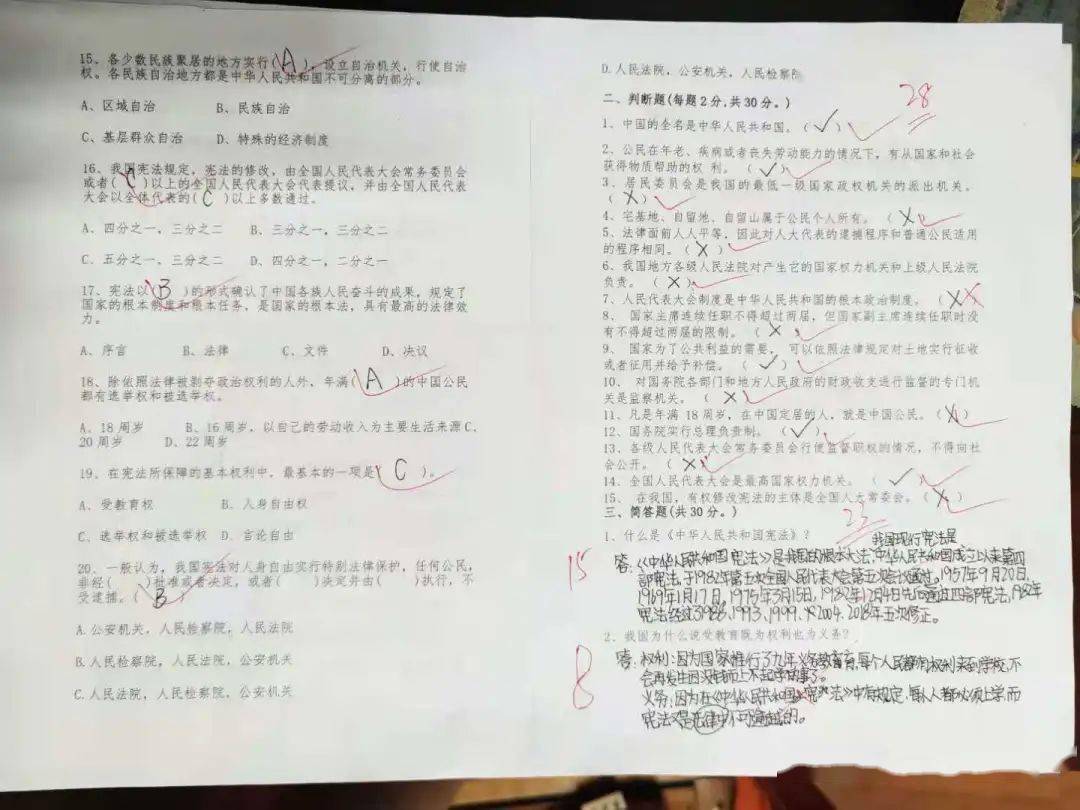 15、各少数民族聚居的地方实行( A ),设立自治机关,行使自治
权。各民族自治地方都是中华人民共和国不可分离的部分。
A、区域自治 B、民族自治
C、基层群众自治 D、特殊的经济制度
16、我国宪法规定,宪法的修改,由全国人民代表大会常务委员会
或者( C )以上的全国人民代表大会代表提议,并由全国人民代表
大会以全体代表的( C )以上多数通过。
A、四分之一,三分之二 B、三分之一,三分之二
C、五分之一,三分之二 D、四分之一,二分之一
17、宪法以( B )的形式确认了中国各族人民奋斗的成果,规定了
国家的根本制度和根本任务,是国家的根本法,具有最高的法律效
力。
A、序言 B、法律 C、文件 D、决议
18、除依照法律被剥夺政治权利的人外,年满( A )的中国公民
都有选举权和被选举权。
A、18 周岁 B、16 周岁,以自己的劳动收入为主要生活来源 C、
20 周岁 D、22 周岁
19、在宪法所保障的基本权利中,最基本的一项是( C )。
A、受教育权 B、人身自由权
C、选举权和被选举权 D、言论自由
20、一般认为,我国宪法对人身自由实行特别法律保护,任何公民,
非经( )批准或者决定,或者( )决定并由( )执行,不
受逮捕。( B )
A.公安机关,人民检察院,人民法院
B.人民检察院,人民法院,公安机关
C.人民法院,人民检察院,公安机关
D.人民法院,公安机关,人民检察院
二、判断题(每题2分,共30分。) 28
1、中国的全名是中华人民共和国。( ✓ )
2、公民在年老、疾病或者丧失劳动能力的情况下,有从国家和社会
获得物质帮助的权 利。( ✓ )
3、居民委员会是我国的最低一级国家政权机关的派出机关。
( X )
4、宅基地、自留池、自留山属于公民个人所有。( X )
5、法律面前人人平等,因此对人大代表的逮捕程序和普通公民适用
的程序相同。( X )
6、我国地方各级人民法院对产生它的国家权力机关和上级人民法院
负责。( X )
7、人民代表大会制度是中华人民共和国的根本政治制度。( X )X
8、 国家主席连续任职不得超过两届,但国家副主席连续任职时没
有不得超过两届的限制。( X )
9、 国家为了公共利益的需要, 可以依照法律规定对土地实行征收
或者征用并给予补偿。( ✓ )
10、 对国务院各部门和地方人民政府的财政收支进行监督的专门机
关是监察机关。( X )
11、凡是年满 18 周岁,在中国定居的人,就是中国公民。( X )
12、国务院实行总理负责制。( ✓ )
13、各级人民代表大会常务委员会行使监督职权的情况,不得向社
会公开。( X )
14、全国人民代表大会是最高国家权力机关。( ✓ )
15、在我国,有权修改宪法的主体是全国人大常委会。( X )
三、简答题(共30分。) 23
1、什么是《中华人民共和国宪法》? 我国现行宪法是
15 答:《中华人民共和国宪法》是我国的根本大法,中华人民共和国成立以来第四
部宪法,于1982年第五次全国人民代表大会第五次会议通过。1957年9月20日、
1969年1月17日、1975年3月15日、1982年12月4日先后通过四部宪法,1982年
宪法经过1988、1993、1999、2004、2018年五次修正。
2、我国为什么说受教育既为权利也为义务?
8 答:权利:因为国家推行了九年义务教育,每个人民都有权利来到学校,不
会再发生因没钱而上不起学的事了。
义务:因为在《中华人民共和国宪法》中有规定,每人都必须上学,而
宪法又是法律中不可逾越的。